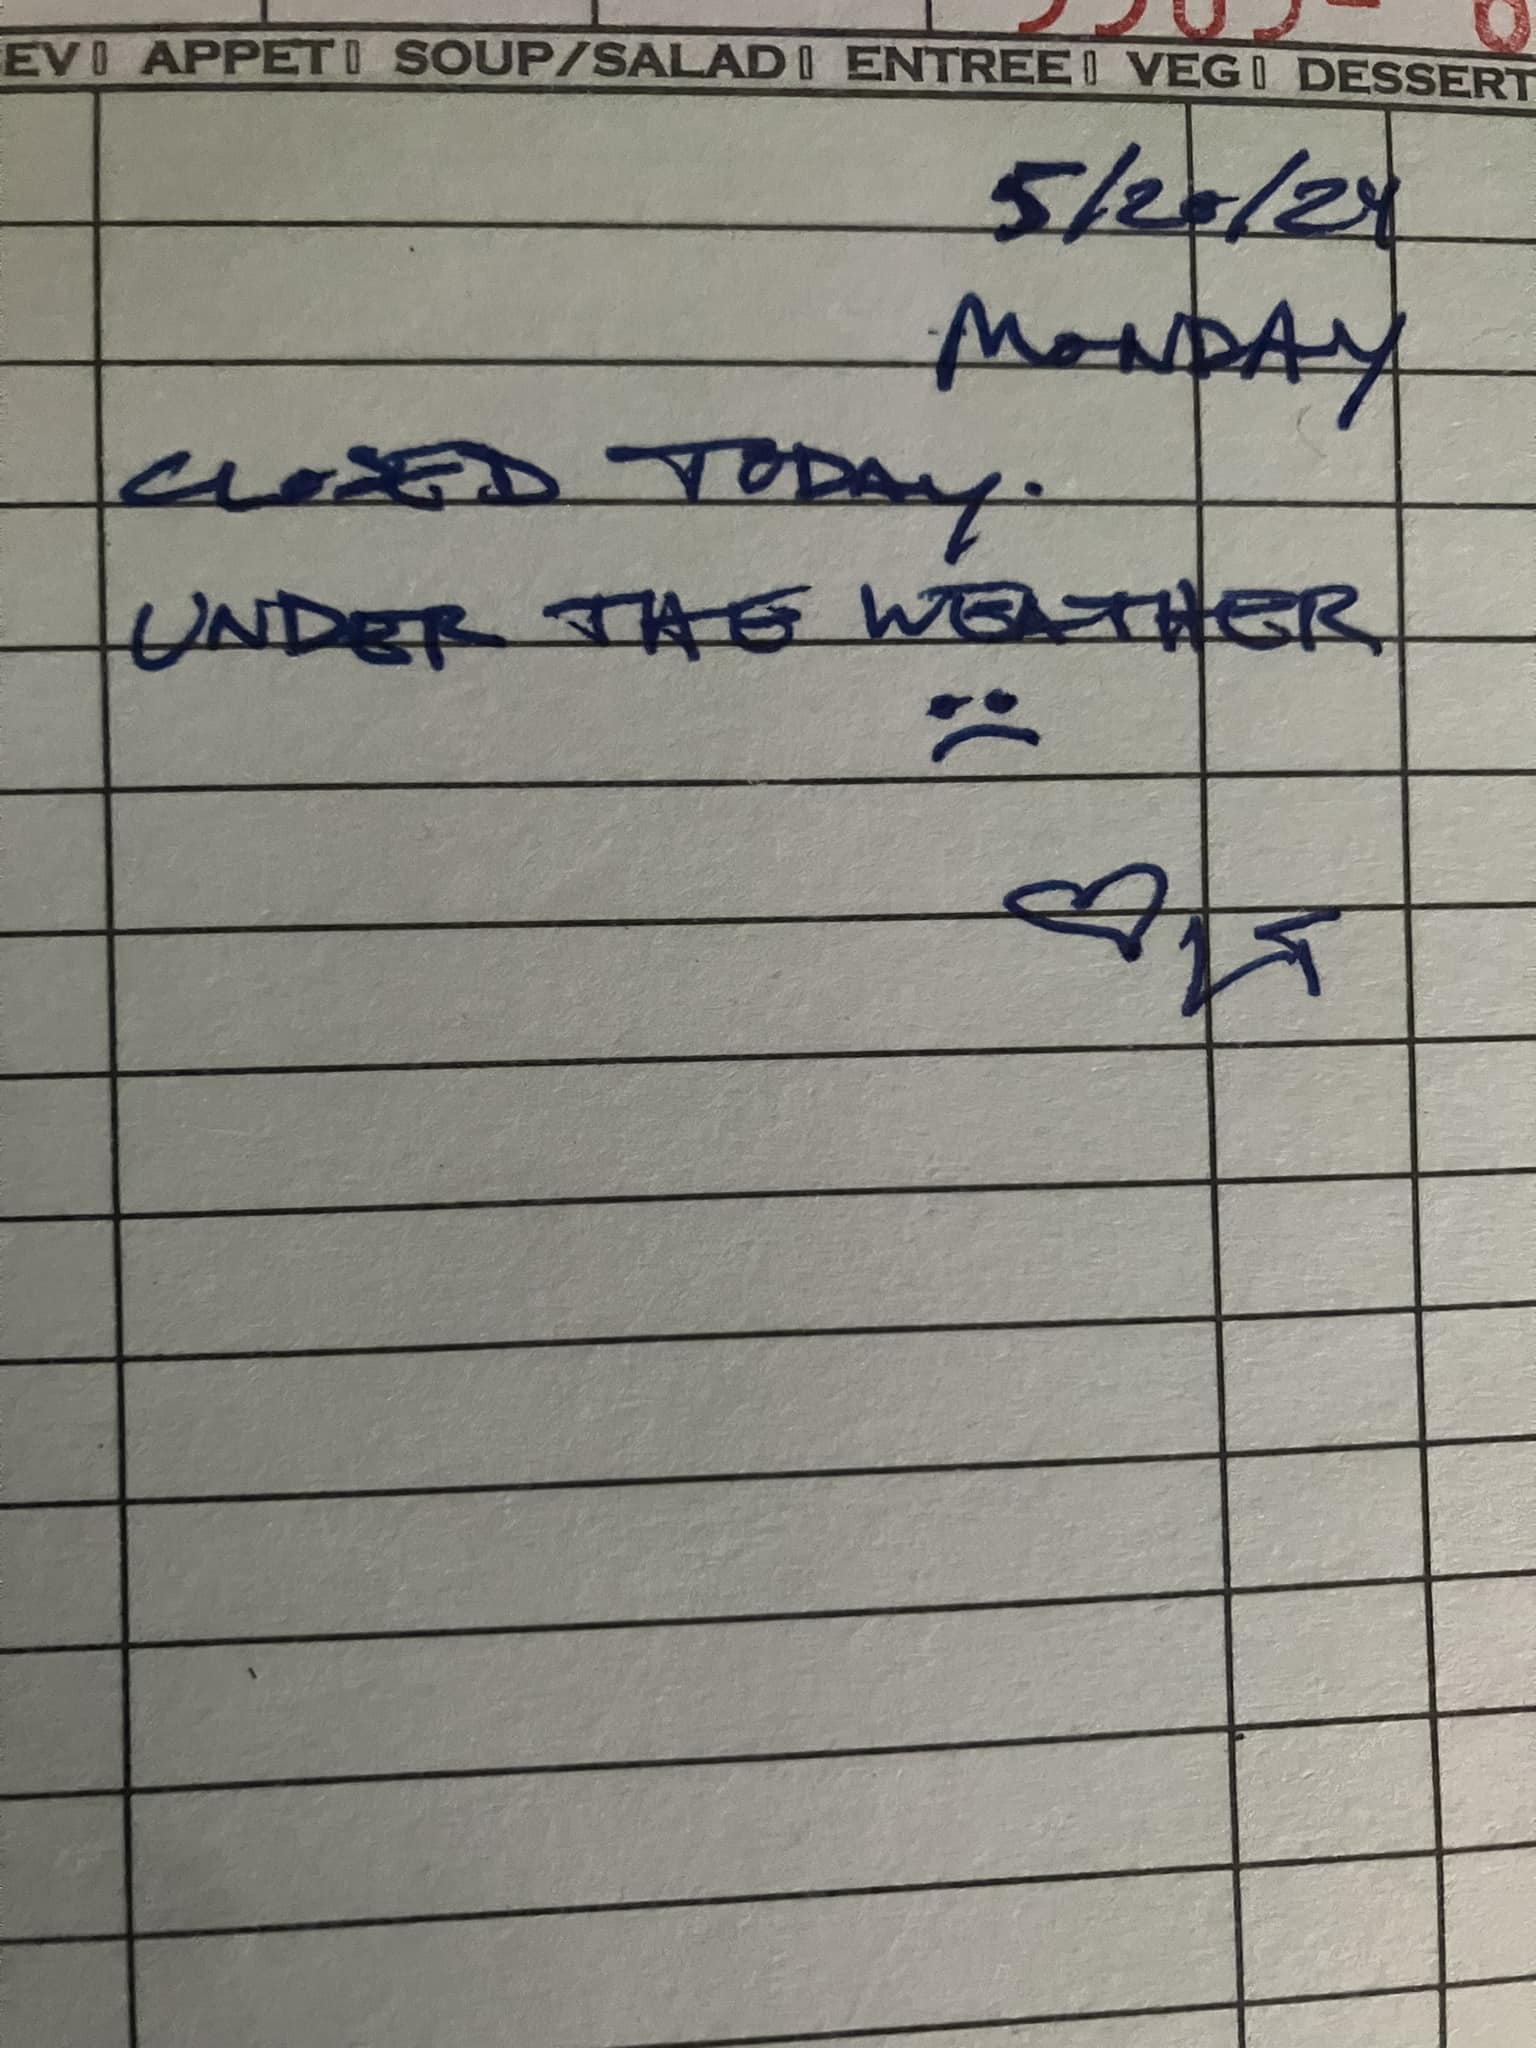 APPET▯ SOUP/SALAD▯ ENTREE▯ VEG▯ DESSERT
5/20/24
MONDAY
CLOSED TODAY.
UNDER THE WEATHER